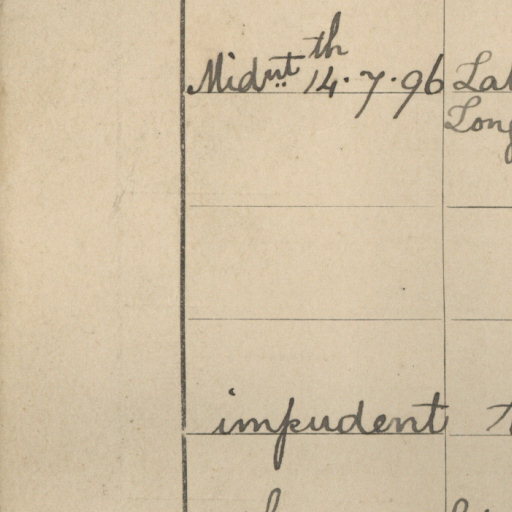 Midnt 14th.7.96 Lat
Long
impudent